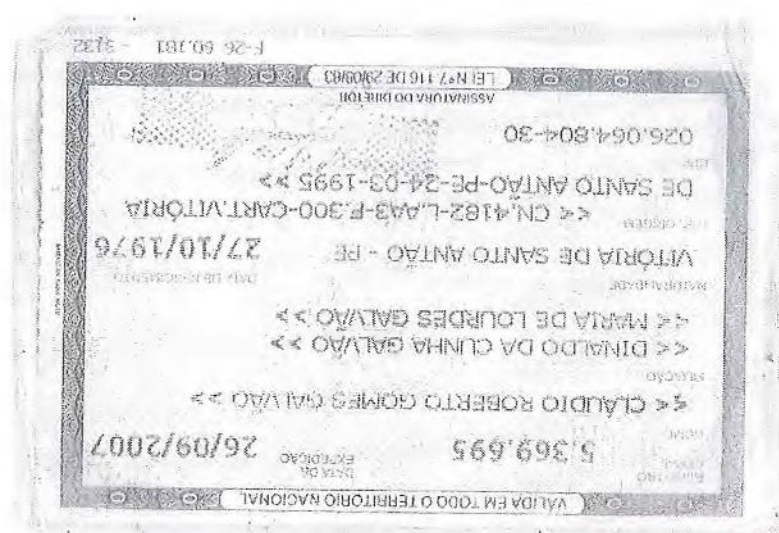 VÁLIDA EM TODO O TERRITÓRIO NACIONAL
REGISTRO GERAL 5.369.695 DATA DE EXPEDIÇÃO 26/09/2007
NOME
<< CLAUDIO ROBERTO GOMES GALVÃO >>
FILIAÇÃO
<< DINALDO DA CUNHA GALVÃO >>
<< MARIA DE LOURDES GALVÃO >>
NATURALIDADE DATA DE NASCIMENTO
VITÓRIA DE SANTO ANTÃO - PE 27/10/1976
DOC. ORIGEM << CN.4182-L.AA3-F.300-CART.VITÓRIA
DE SANTO ANTÃO-PE-24-03-1995 >>
CPF
026.064.804-30
ASSINATURA DO DIRETOR
LEI Nº 7.116 DE 29/08/83
F-26 60.181 - 3132